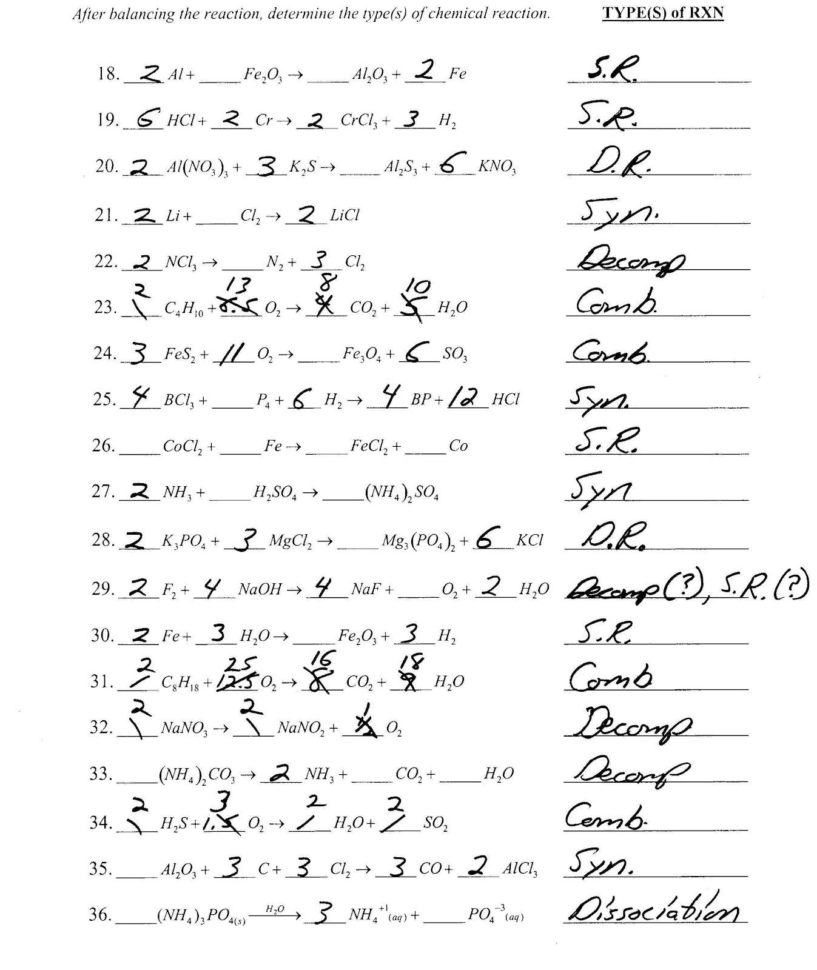 After balancing the reaction, determine the type(s) of chemical reaction. TYPE(S) of RXN
18. 2 Al + ____ Fe₂O₃ → ____ Al₂O₃ + 2 Fe S.R.
19. 6 HCl + 2 Cr → 2 CrCl₃ + 3 H₂ S.R.
20. 2 Al(NO₃)₃ + 3 K₂S → ____ Al₂S₃ + 6 KNO₃ D.R.
21. 2 Li + ____ Cl₂ → 2 LiCl Syn.
22. 2 NCl₃ → ____ N₂ + 3 Cl₂ Decomp
2 13 8 10
23. 1 C₄H₁₀ + 6.5 O₂ → 4 CO₂ + 5 H₂O Comb.
24. 3 FeS₂ + 11 O₂ → ____ Fe₃O₄ + 6 SO₃ Comb.
25. 4 BCl₃ + ____ P₄ + 6 H₂ → 4 BP + 12 HCl Syn.
26. ____ CoCl₂ + ____ Fe → ____ FeCl₂ + ____ Co S.R.
27. 2 NH₃ + ____ H₂SO₄ → ____ (NH₄)₂SO₄ Syn
28. 2 K₃PO₄ + 3 MgCl₂ → ____ Mg₃(PO₄)₂ + 6 KCl D.R.
29. 2 F₂ + 4 NaOH → 4 NaF + ____ O₂ + 2 H₂O Decomp(?), S.R.(?)
30. 2 Fe + 3 H₂O → ____ Fe₂O₃ + 3 H₂ S.R.
2 25 16 18
31. / C₈H₁₈ + 12.5 O₂ → 8 CO₂ + 9 H₂O Comb
2 2 1
32. \ NaNO₃ → \ NaNO₂ + ½ O₂ Decomp
33. ____ (NH₄)₂CO₃ → 2 NH₃ + ____ CO₂ + ____ H₂O Decomp
2 3 2 2
34. \ H₂S + 1.5 O₂ → / H₂O + / SO₂ Comb.
35. ____ Al₂O₃ + 3 C + 3 Cl₂ → 3 CO + 2 AlCl₃ Syn.
36. ____ (NH₄)₃PO₄(s) —H₂O→ 3 NH₄⁺¹(aq) + ____ PO₄⁻³(aq) Dissociation